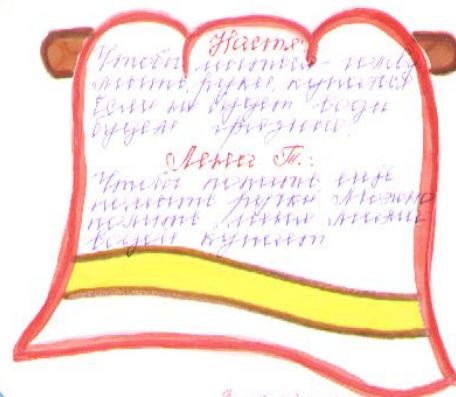 Настя:
Чтобы мыться
мыть руки, купаться
Если не будет воды
будем грязные.
Лена Т.:
Чтобы попить еще
помыть ручки Можно
попить, меня мама
водой купает